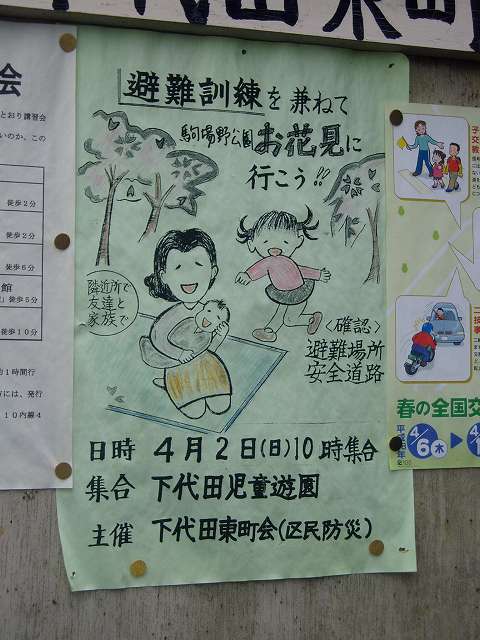 下代田東町
会
とおり講習会
いのか、この
徒歩2分
徒歩2分
徒歩6分
館
徒歩5分
徒歩10分
約1時間行
方には、発行
10内線4
避難訓練を兼ねて
駒場野公園お花見に
行こう!!
隣近所で
友達と
家族で
<確認>
避難場所
安全道路
日時 4月2日(日)10時集合
集合 下代田児童遊園
主催 下代田東町会(区民防災)
春の全国交
4/6(木)